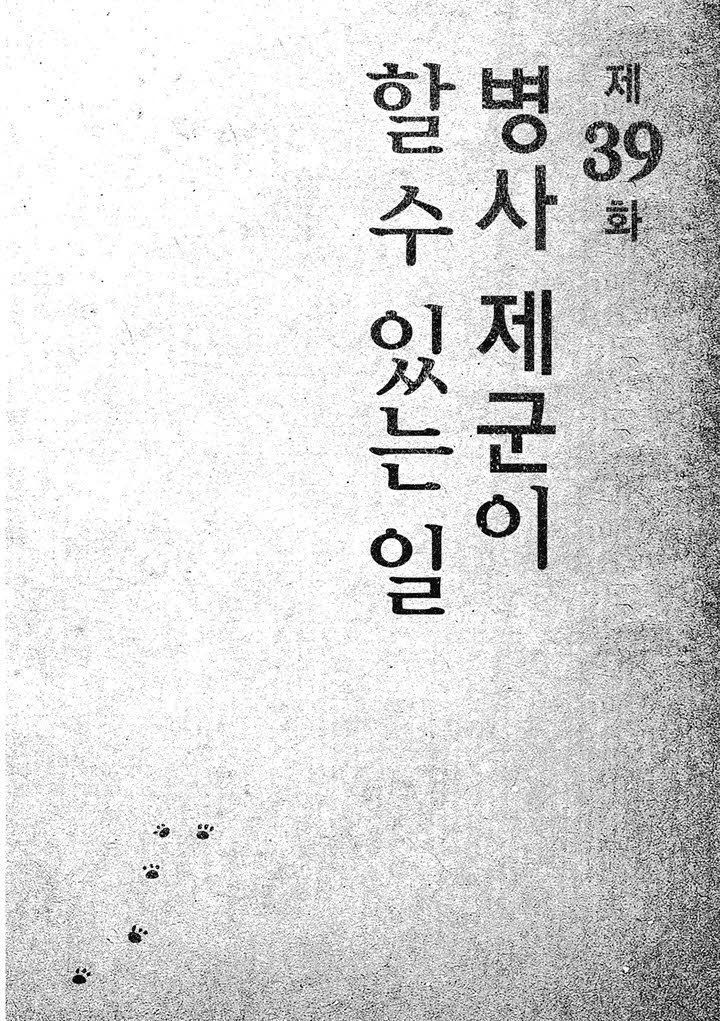 제39화
병사 제군이
할 수 있는 일